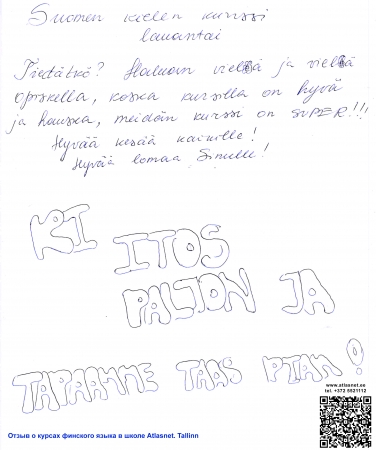 Suomen kielen kurssi
lauantai
Tiedätkö? Haluan vielä ja vielä
opiskella, koska kursilla on hyvä
ja hauska, meidän kurssi on SUPER!!!
Hyvää kesää kaikille!
Hyvää lomaa Sinulle!
KI ITOS
PALJON JA
TAPAAMME TAAS PIAN!
www.atlasnet.ee
tel. +372 5521112
Отзыв о курсах финского языка в школе Atlasnet. Tallinn